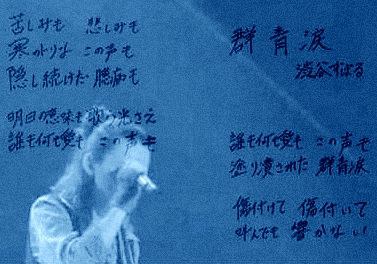 苦しみも 悲しみも
寒がりな この声も
隠し続けた 臆病も
明日の意味も 歌う光さえ
誰も何も愛も この声も
群青涙
渋谷すばる
誰も何も愛も この声も
塗り潰された 群青涙
傷付けて 傷付いて
叫んでも 響かない